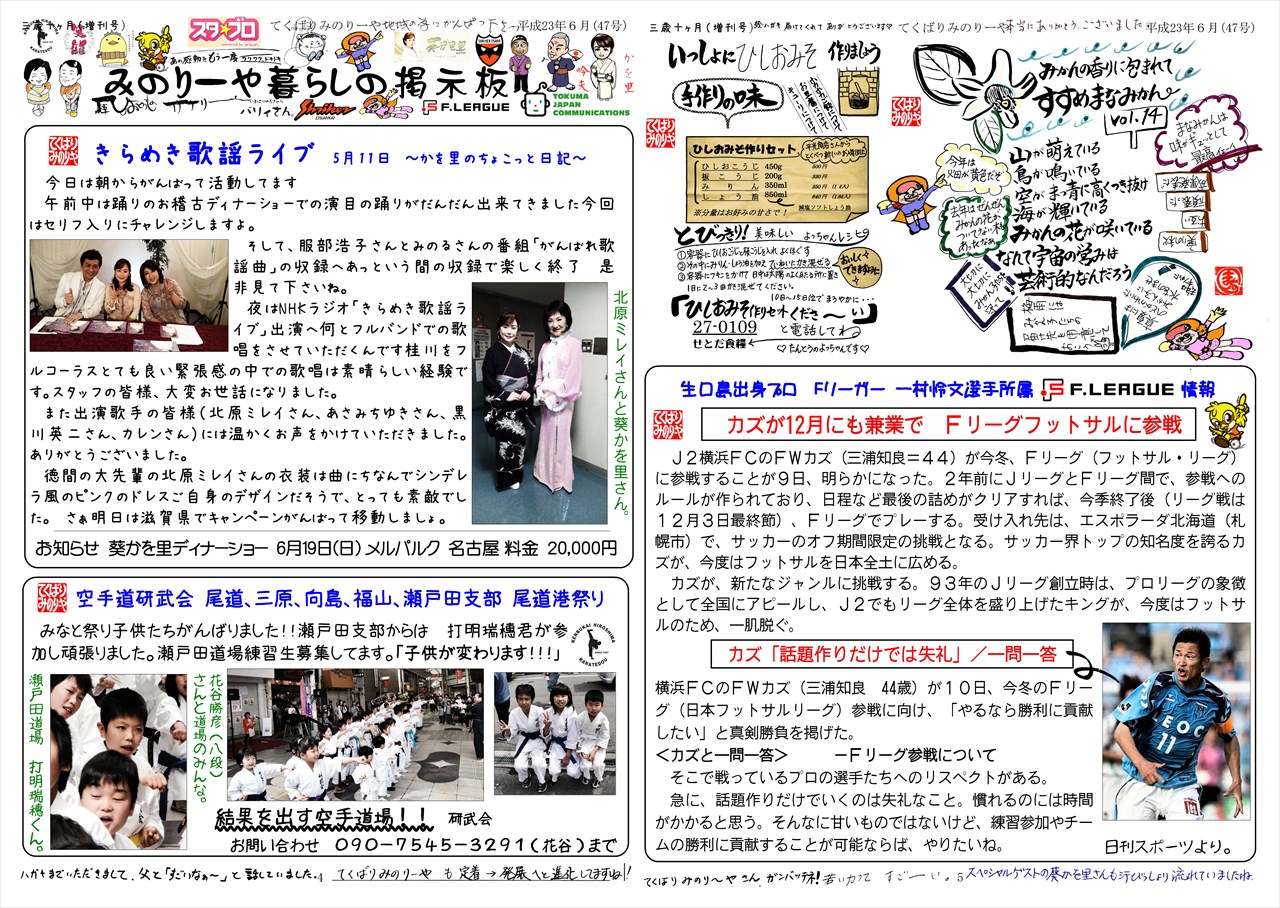 三歳十ヶ月(増刊号)
てくばりみのりーや
平成23年6月(47号)
スタ☆プロ
あの感動をもう一度
葵かを里
みのりーや暮らしの掲示板
バリィさん
Shriker
OSAKA
F.LEAGUE
TOKUMA
JAPAN
COMMUNICATIONS
かを里
てくばり
みのりや
きらめき歌謡ライブ 5月11日 〜かを里のちょこっと日記〜
今日は朝からがんばって活動してます
午前中は踊りのお稽古ディナーショーでの演目の踊りがだんだん出来てきました今回
はセリフ入りにチャレンジしますよ。
そして、服部浩子さんとみのるさんの番組「がんばれ歌
謡曲」の収録へあっという間の収録で楽しく終了 是
非見て下さいね。
夜はNHKラジオ「きらめき歌謡ラ
イブ」出演へ何とフルバンドでの歌
唱をさせていただくんです桂川をフ
ルコーラスとても良い緊張感の中での歌唱は素晴らしい経験で
す。スタッフの皆様、大変お世話になりました。
また出演歌手の皆様(北原ミレイさん、あさみちゆきさん、黒
川英二さん、カレンさん)には温かくお声をかけていただきました。
ありがとうございました。
徳間の大先輩の北原ミレイさんの衣装は曲にちなんでシンデレ
ラ風のピンクのドレスご自身のデザインだそうで、とっても素敵でし
た。 さぁ明日は滋賀県でキャンペーンがんばって移動しましょ。
北原ミレイさんと葵かを里さん。
お知らせ 葵かを里ディナーショー 6月19日(日) メルパルク 名古屋 料金 20,000円
てくばり
みのりや
空手道研武会 尾道、三原、向島、福山、瀬戸田支部 尾道港祭り
みなと祭り子供たちがんばりました!!瀬戸田支部からは 打明瑞穂君が参
加し頑張りました。瀬戸田道場練習生募集してます。「子供が変わります!!!」
KENBUKAI HIROSHIMA
KARATEDOU
瀬戸田道場 打明瑞穂くん。
花谷勝彦(八段)
さんと道場のみんな。
結果を出す空手道場!! 研武会
お問い合わせ 090-7545-3291(花谷)まで
ハガキまでいただきまして、父と「すごいなぁ〜」と話していました。
4
てくばりみのりーや も 定着→発展へと進化してますね!
三歳十ヶ月(増刊号)
てくばりみのりーや
本当にありがとうございました
平成23年6月(47号)
いっしょにひしおみそ 作りましょう
手作りの味
てくばり
みのりや
ひしおみそ作りセット
ひしおこうじ 450g
板こうじ 200g
みりん 350ml
しょう油 850ml
※分量はお好みの甘さで!
減塩ソフトしょう油
とびっきり! 美味しい よっちゃんレシピ
おいしくできますように
10日〜15日位でまろやかに・・・
「ひしおみそ作りセットくださ〜い」
27-0109 と電話してね
せとだ食糧
♡たんとうのよっちゃんです♡
てくばり
みのりや
みかんの香りに包まれて
すすめまなみかん
vol.14
まなみかんは
味がギュッとして
最高ィェーイ
今年は
畑が黄色だぞ
去年はぜんぜん
みかんの花が
ついてない木も
あったなぁ
山が萌えている
鳥が鳴いている
空がま・青に高くつき抜け
海が輝いている
みかんの花が咲いている
なんて宇宙の営みは
芸術的なんだろう
生口島出身プロ Fリーガー 一村怜文選手所属 F.LEAGUE 情報
てくばり
みのりや
カズが12月にも兼業で Fリーグフットサルに参戦
J2横浜FCのFWカズ(三浦知良=44)が今冬、Fリーグ(フットサル・リーグ)
に参戦することが9日、明らかになった。2年前にJリーグとFリーグ間で、参戦への
ルールが作られており、日程など最後の詰めがクリアすれば、今季終了後(リーグ戦は
12月3日最終節)、Fリーグでプレーする。受け入れ先は、エスポラーダ北海道(札
幌市)で、サッカーのオフ期間限定の挑戦となる。サッカー界トップの知名度を誇るカ
ズが、今度はフットサルを日本全土に広める。
カズが、新たなジャンルに挑戦する。93年のJリーグ創立時は、プロリーグの象徴
として全国にアピールし、J2でもリーグ全体を盛り上げたキングが、今度はフットサ
ルのため、一肌脱ぐ。
カズ「話題作りだけでは失礼」/一問一答
横浜FCのFWカズ(三浦知良 44歳)が10日、今冬のFリー
グ(日本フットサルリーグ)参戦に向け、「やるなら勝利に貢献
したい」と真剣勝負を掲げた。
<カズと一問一答> －Fリーグ参戦について
そこで戦っているプロの選手たちへのリスペクトがある。
急に、話題作りだけでいくのは失礼なこと。慣れるのには時間
がかかると思う。そんなに甘いものではないけど、練習参加やチー
ムの勝利に貢献することが可能ならば、やりたいね。
日刊スポーツより。
てくばりみのり〜やさん、ガンバッテネ!若い力って すご〜い。
5
スペシャルゲストの葵かを里さんも汗びっしょり流れていましたね。